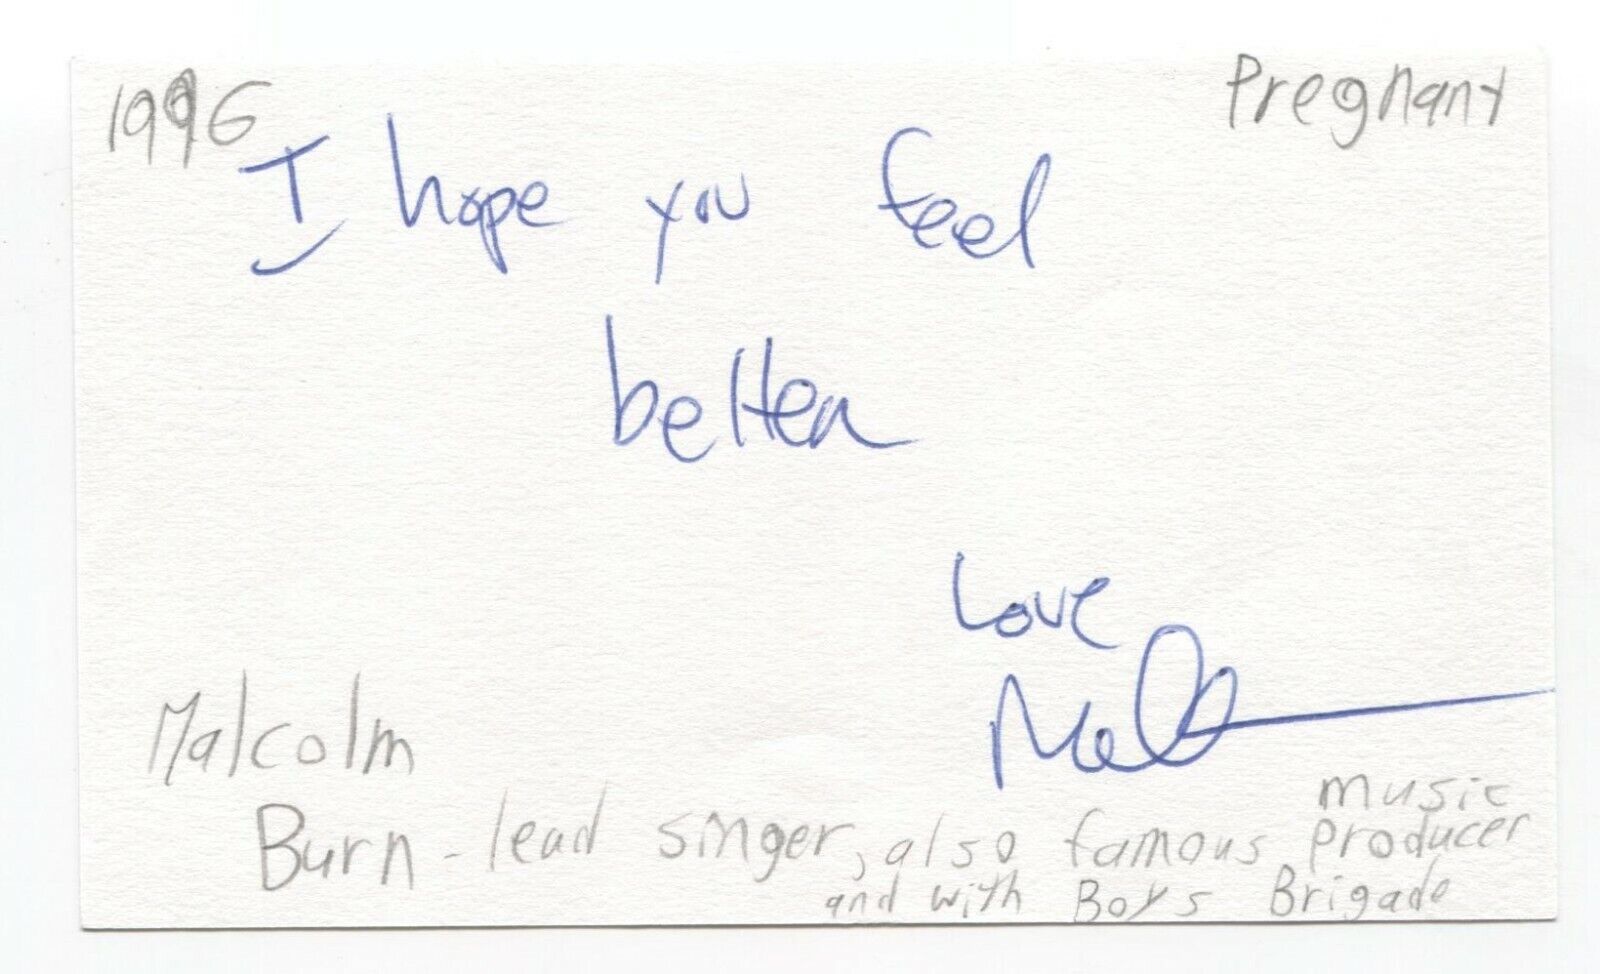 1996
Pregnant
I hope you feel
better
Love
Malcolm
Burn - lead singer, also famous music producer
and with Boys Brigade